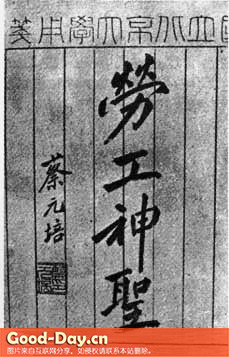 國立北京大學用箋
勞工神聖
蔡元培
Good-Day.cn
图片来自互联网分享，如侵权请联系本站删除。